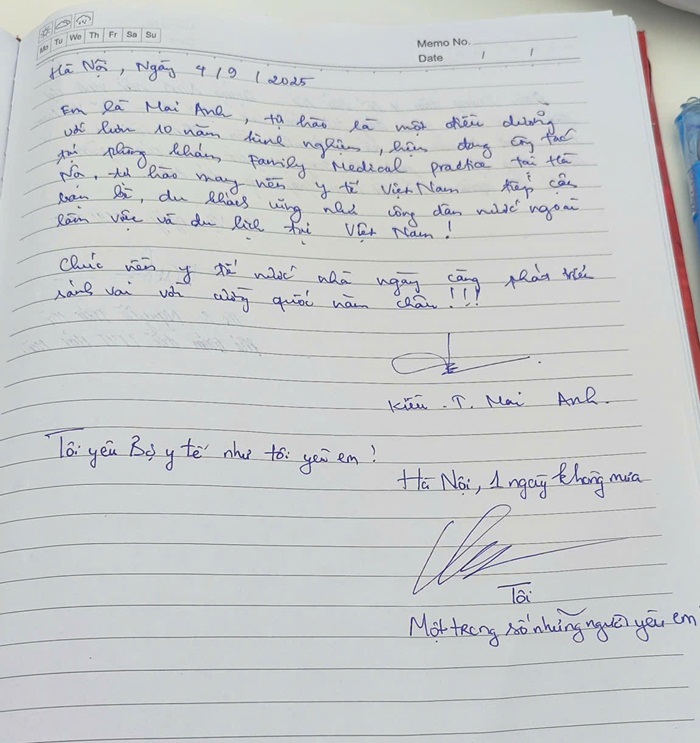 Mo Tu We Th Fr Sa Su
Memo No.
Date / /
Hà Nội, Ngày 4/9/2025
Em là Mai Anh, tự hào là một điều dưỡng
với hơn 10 năm kinh nghiệm, hiện đang công tác
tại phòng khám Family Medical practice tại Hà
Nội, tự hào mang nền y tế Việt Nam tiếp cận
bạn bè, du khách cũng như công dân nước ngoài
làm việc và du lịch tại Việt Nam!
Chúc nền y tế nước nhà ngày càng phát triển
sánh vai với cường quốc năm châu!!!
Kiều.T. Mai Anh.
Tôi yêu Bộ y tế như tôi yêu em!
Hà Nội, 1 ngày không mưa
Tôi
Một trong số những người yêu em